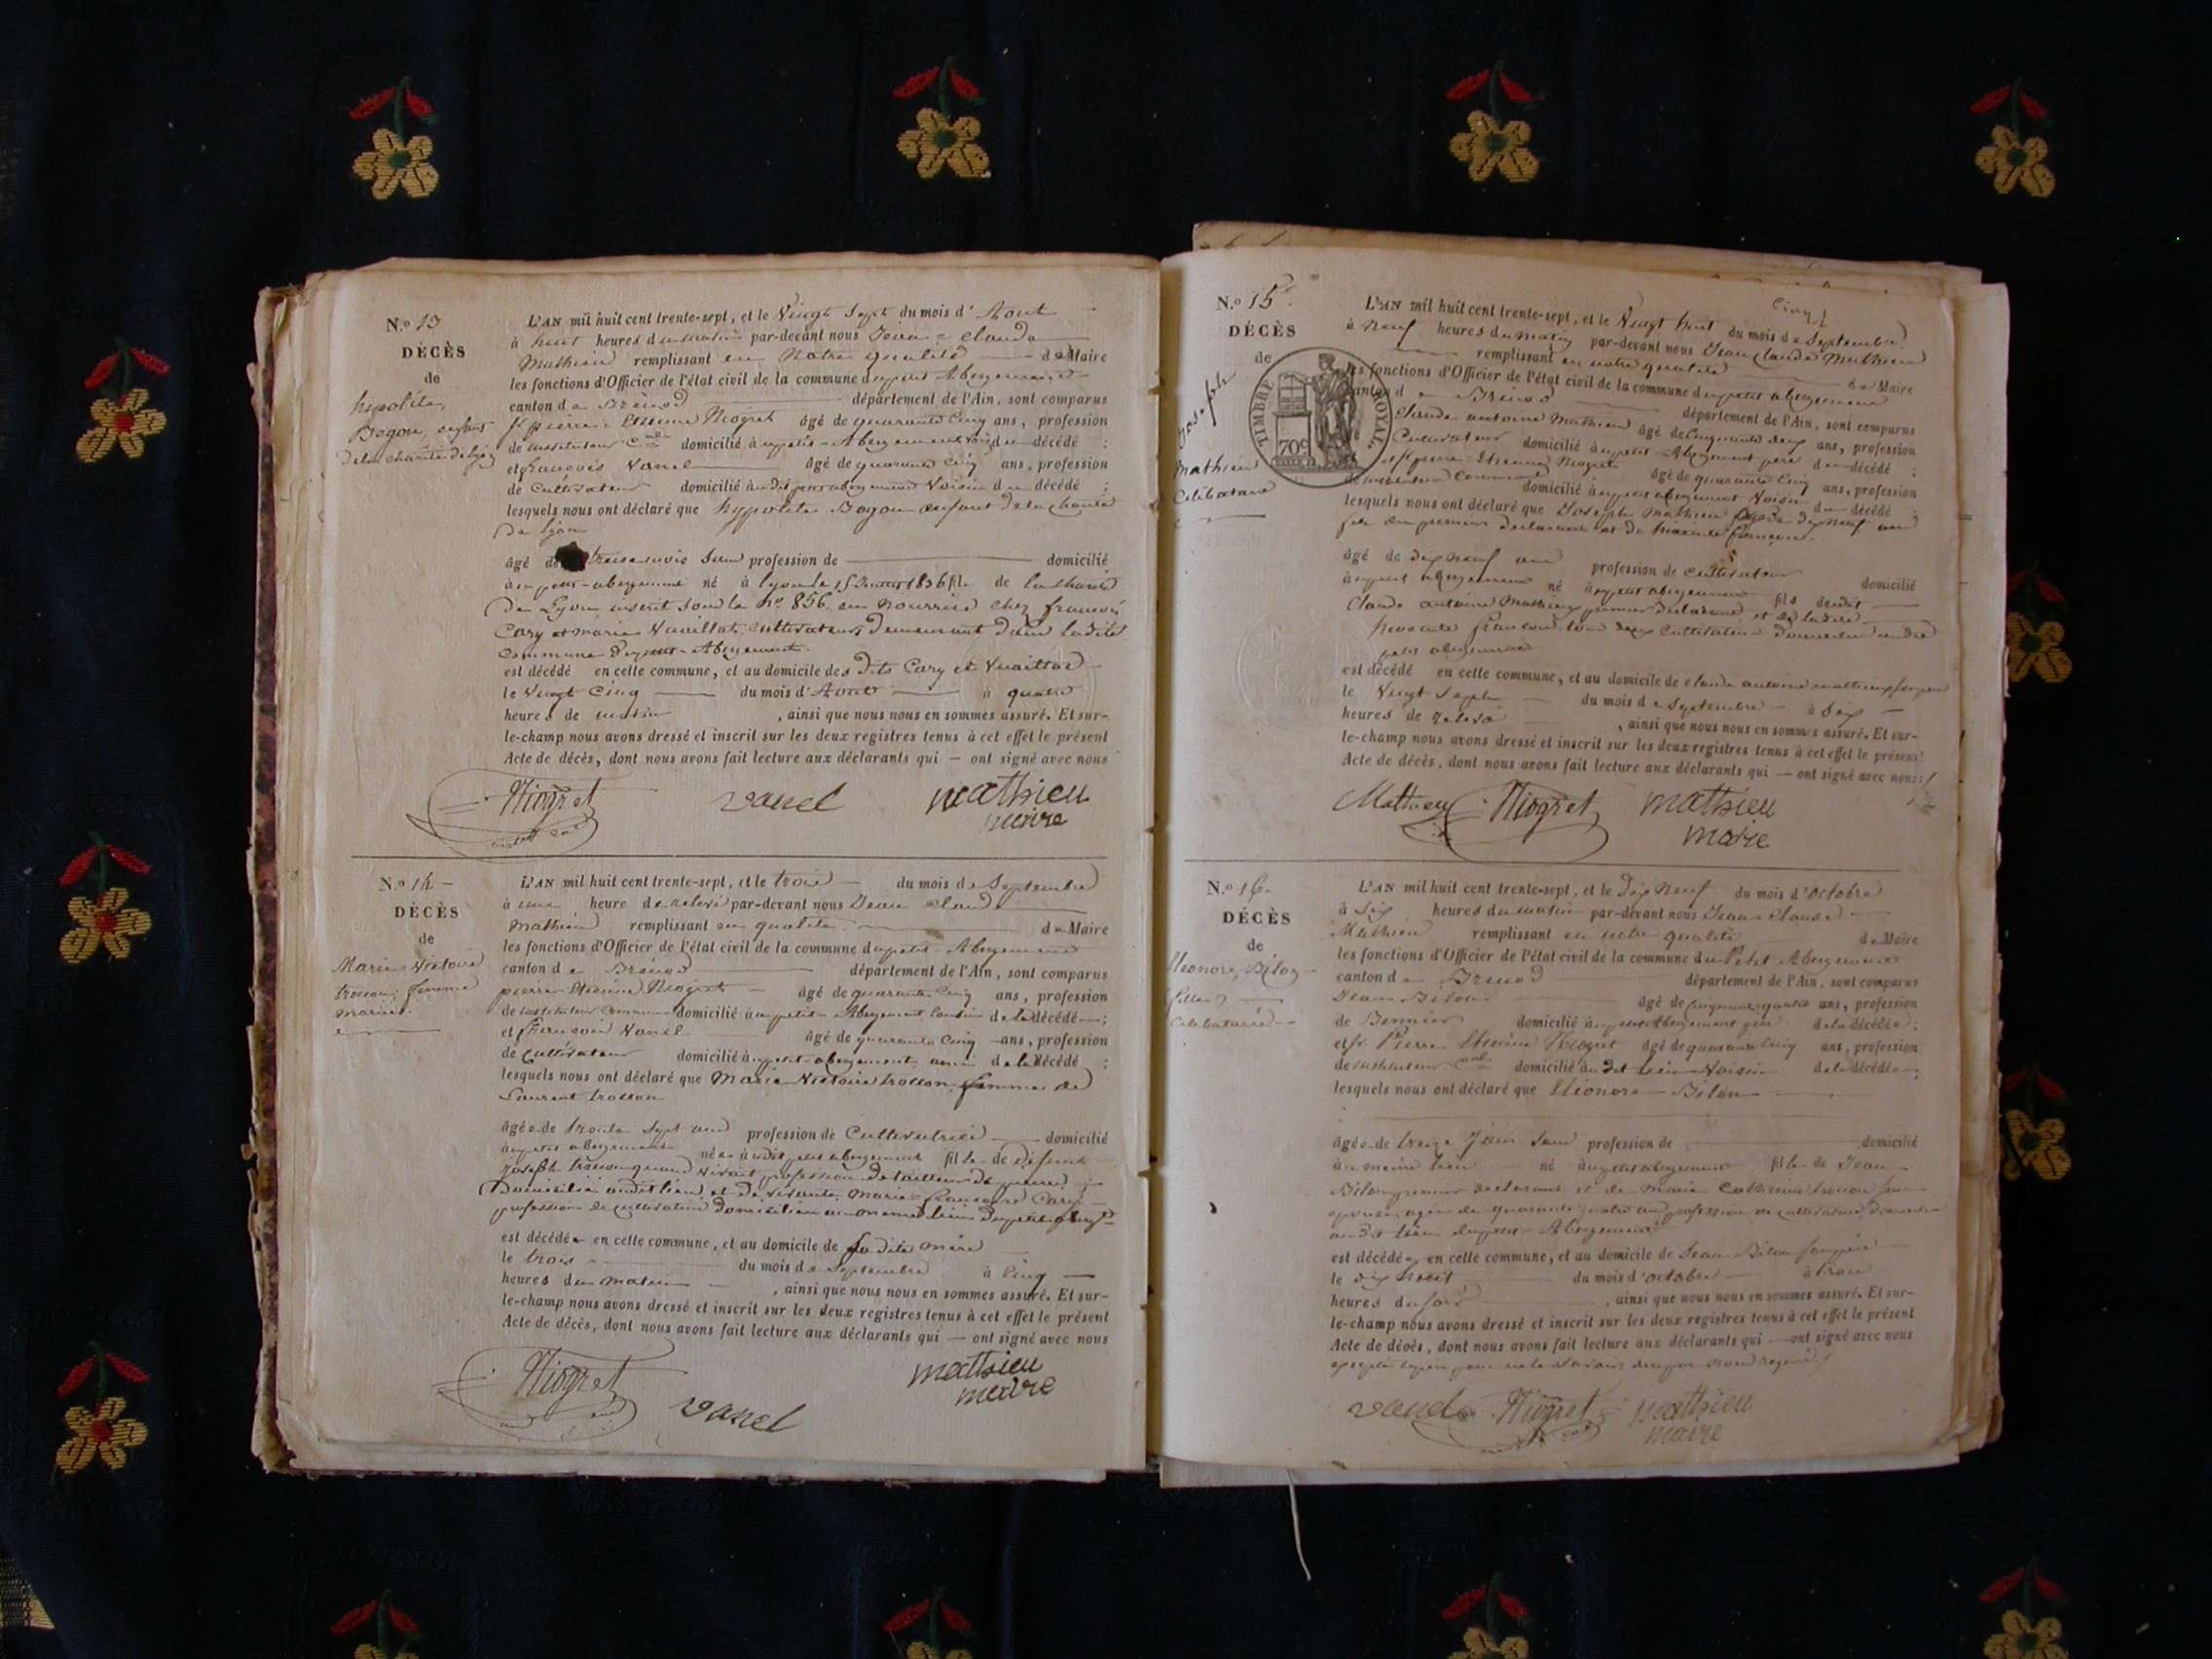 N.º 13
DÉCÈS
de
hipolite
Bogon, enfant
de la charité de lyon
L'AN mil huit cent trente-sept, et le Vingt Sept du mois d'Aout
à huit heures du matin par-devant nous Jean = Claude
Mathieu remplissant en Notre qualité de Maire
les fonctions d'Officier de l'état civil de la commune du petit Abergement
canton de Brénod département de l'Ain, sont comparus
Sr pierre Etienne Niogret âgé de quarante Cinq ans, profession
de instituteur Cnal domicilié à au petit-Abergement Voisin du décédé ;
et françois Vanel âgé de quarante Cinq ans, profession
de Cultivateur domicilié à du dit petit abergement Voisin du décédé ;
lesquels nous ont déclaré que hyppolite Bogon enfant de la charité
De lyon
âgé de treise mois Sans profession de domicilié
à au petit-abergement né à lyon le 15 Juillet 1836 fils de la Charité
De Lyon inscrit sous le no. 856 en nourrice chez françois
Cary et marie Vuaillat Cultivateurs demeurant dans ladite
Commune du petit-Abergement.
est décédé en celle commune, et au domicile des dits Cary et Vuaillat
le Vingt Cinq du mois d'Aout à quatre
heures de matin , ainsi que nous nous en sommes assuré. Et sur-
le-champ nous avons dressé et inscrit sur les deux registres tenus à cet effet le présent
Acte de décès, dont nous avons fait lecture aux déclarants qui — ont signé avec nous
Niogret vanel mathieu
maire
N.º 14
DÉCÈS
de
Marie Victoire
trocon, femme
mariée.
L'AN mil huit cent trente-sept, et le trois du mois de Septembre
à une heure de relevé par-devant nous Jean Claude
Mathieu remplissant en qualité de Maire
les fonctions d'Officier de l'état civil de la commune du petit Abergement
canton de Brénod département de l'Ain, sont comparus
pierre Etienne Niogret âgé de quarante Cinq ans, profession
de instituteur Communal domicilié à au petit Abergement Cousin de la décédée ;
et François Vanel âgé de quarante Cinq ans, profession
de Cultivateur domicilié à au petit-abergement ami de la décédé ;
lesquels nous ont déclaré que Marie Victoire trocon femme de
Laurent trocon
âgée de trente Sept ans profession de Cultivatrice domicilié
à au petit abergement née à au dit petit abergement fille de défunt
Joseph trocon quand Vivant profession de tailleur de pierre
Domicilié audit lieu et de vivante Marie françoise Cary
profession de cultivatrice domiciliée au même lieu
est décédée en celle commune, et au domicile de sa dite mère
le trois du mois de Septembre à Cinq
heures du matin , ainsi que nous nous en sommes assuré. Et sur-
le-champ nous avons dressé et inscrit sur les deux registres tenus à cet effet le présent
Acte de décès, dont nous avons fait lecture aux déclarants qui — ont signé avec nous
Niogret vanel mathieu
maire
N.º 15
DÉCÈS
de
Joseph
Mathieu
Célibataire
TIMBRE ROYAL.
70c
L'AN mil huit cent trente-sept, et le Vingt huit du mois de Septembre
à Neuf heures du matin par-devant nous Jean Claude Mathieu
remplissant en notre qualité de Maire
les fonctions d'Officier de l'état civil de la commune du petit abergement
canton de Brénod département de l'Ain, sont comparus
Claude antoine Mathieu âgé de Cinquante deux ans, profession
Cultivateur domicilié à au petit-Abergement père du décédé ;
et Sr pierre-Etienne Niogret âgé de quarante Cinq ans, profession
de instituteur Communal domicilié à au petit abergement Voisin du décédé ;
lesquels nous ont déclaré que Joseph Mathieu âgé de dix neuf ans
fils du premier déclarant et de
âgé de dix neuf ans profession de cultivateur domicilié
à au petit abergement né à au petit abergement fils dudit
Claude antoine Mathieu premier déclarant et de ladite
tous deux Cultivateurs demeurant audit
petit abergement
est décédé en celle commune, et au domicile de claude antoine mathieu son père
le Vingt Sept du mois de Septembre à Six
heures de relevé , ainsi que nous nous en sommes assuré. Et sur-
le-champ nous avons dressé et inscrit sur les deux registres tenus à cet effet le présent
Acte de décès, dont nous avons fait lecture aux déclarants qui — ont signé avec nous
Mathieu Niogret mathieu
maire
N.º 16
DÉCÈS
de
Eléonore, Bilon
fille
Célibataire
L'AN mil huit cent trente-sept, et le Dix Neuf du mois d'Octobre
à Six heures du matin par-devant nous Jean Claude
Mathieu remplissant en notre qualité de Maire
les fonctions d'Officier de l'état civil de la commune du Petit Abergement
canton de Brénod département de l'Ain, sont comparus
Jean Bilon âgé de Cinquante quatre ans, profession
de domicilié à au petit Abergement père de la décédée ;
et Sr Pierre Etienne Niogret âgé de quarante Cinq ans, profession
de instituteur Cnal domicilié au dit lieu Voisin de la décédée ;
lesquels nous ont déclaré que Eléonore Bilon
âgée de treize Jours Sans profession de domicilié
à au même lieu né à au petit abergement fille de Jean
Bilon premier déclarant et de Marie Catherine trocon son
épouse agée de quarante quatre ans profession de cultivatrice
au dit lieu du petit Abergement
est décédée en celle commune, et au domicile de Jean Bilon son père
le dix huit du mois d'octobre à trois
heures du soir , ainsi que nous nous en sommes assuré. Et sur-
le-champ nous avons dressé et inscrit sur les deux registres tenus à cet effet le présent
Acte de décès, dont nous avons fait lecture aux déclarants qui — ont signé avec nous
vanel Niogret mathieu
maire